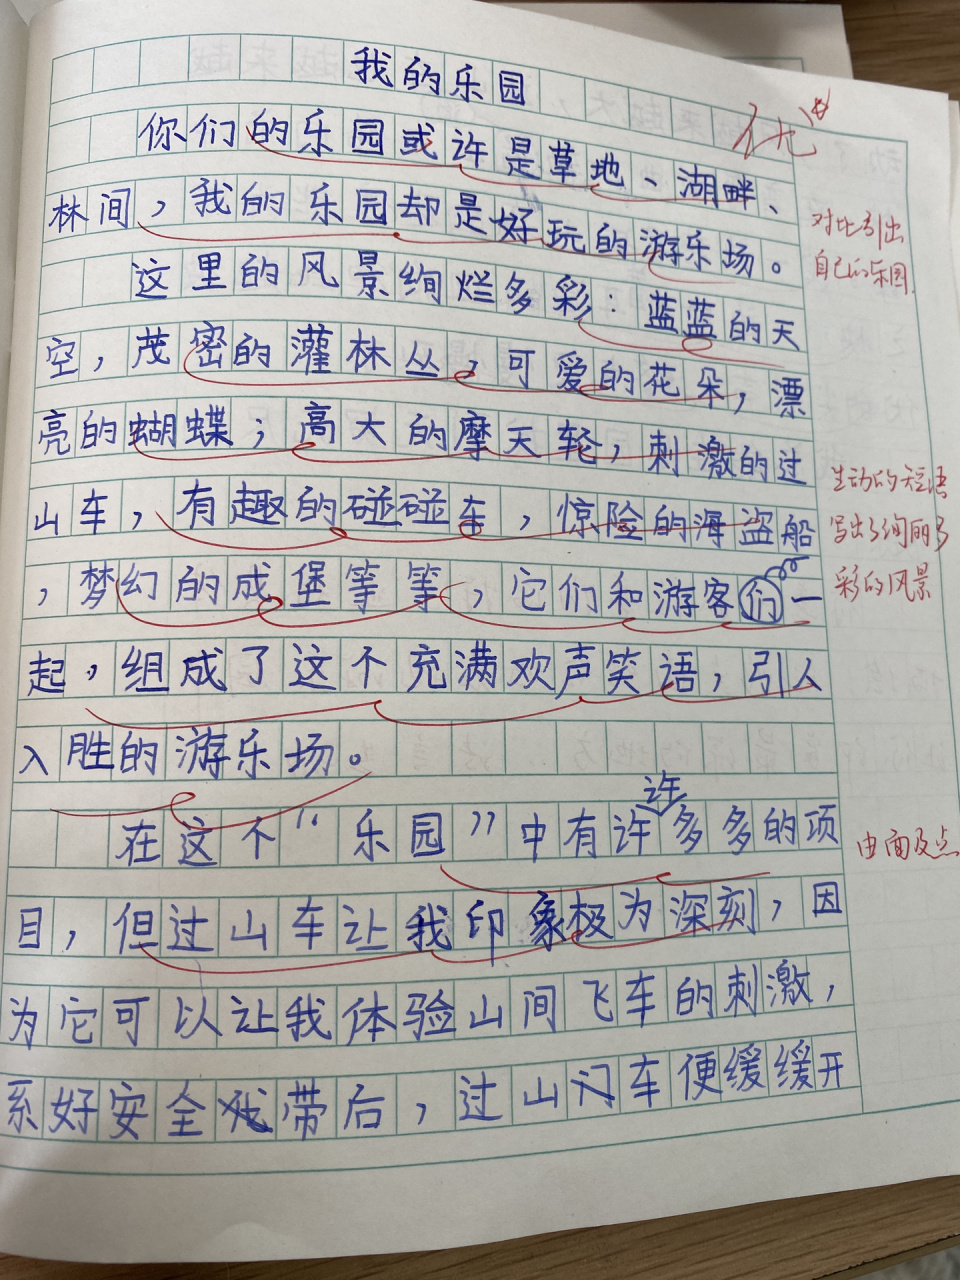 我的乐园
优
你们的乐园或许是草地、湖畔、
林间，我的乐园却是好玩的游乐场。
对比引出
自己的乐园.
这里的风景绚烂多彩：蓝蓝的天
空，茂密的灌林丛，可爱的花朵，漂
亮的蝴蝶；高大的摩天轮，刺激的过
山车，有趣的碰碰车，惊险的海盗船
，梦幻的成堡等等，它们和游客们一
起，组成了这个充满欢声笑语，引人
入胜的游乐场。
生动的短语
写出了绚丽多
彩的风景
在这个“乐园”中有许许多多的项
目，但过山车让我印象极为深刻，因
由面及点
为它可以让我体验山间飞车的刺激，
系好安全带后，过山车便缓缓开